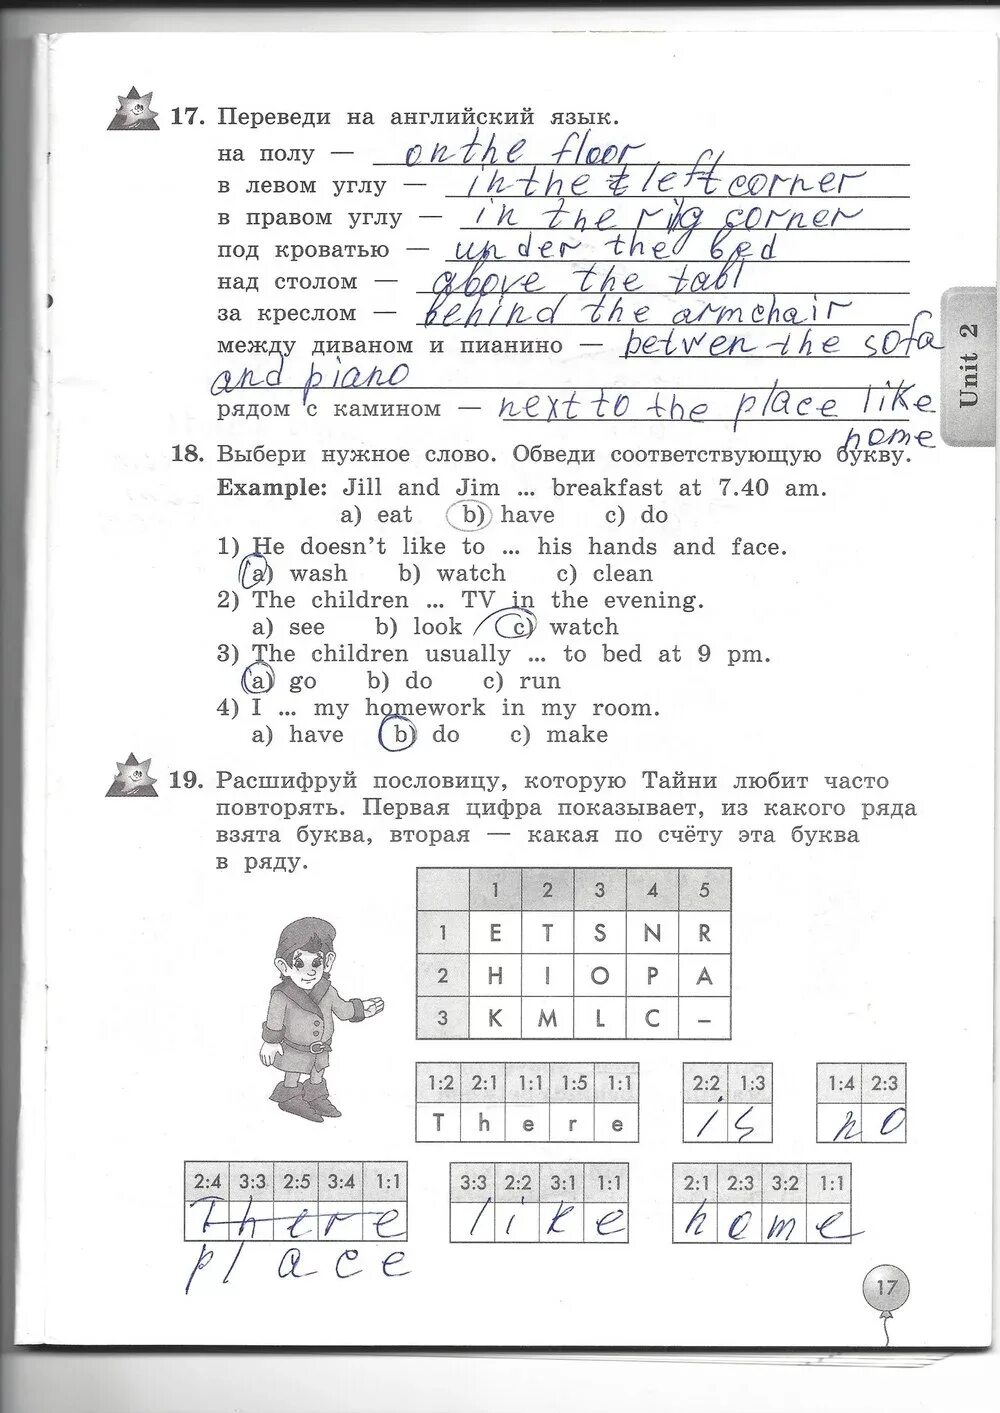 17. Переведи на английский язык.
на полу — on the floor
в левом углу — in the left corner
в правом углу — in the rig corner
под кроватью — under the bed
над столом — above the tabl
за креслом — behind the armchair
между диваном и пианино — betwen the sofa
and piano
рядом с камином — next to the place like
home
Unit 2
18. Выбери нужное слово. Обведи соответствующую букву.
Example: Jill and Jim ... breakfast at 7.40 am.
a) eat b) have c) do
1) He doesn't like to ... his hands and face.
a) wash b) watch c) clean
2) The children ... TV in the evening.
a) see b) look c) watch
3) The children usually ... to bed at 9 pm.
a) go b) do c) run
4) I ... my homework in my room.
a) have b) do c) make
19. Расшифруй пословицу, которую Тайни любит часто
повторять. Первая цифра показывает, из какого ряда
взята буква, вторая — какая по счёту эта буква
в ряду.
1 2 3 4 5
1 E T S N R
2 H I O P A
3 K M L C –
1:2 2:1 1:1 1:5 1:1 2:2 1:3 1:4 2:3
T h e r e i s n o
2:4 3:3 2:5 3:4 1:1 3:3 2:2 3:1 1:1 2:1 2:3 3:2 1:1
There l i k e h o m e
p l a c e
17